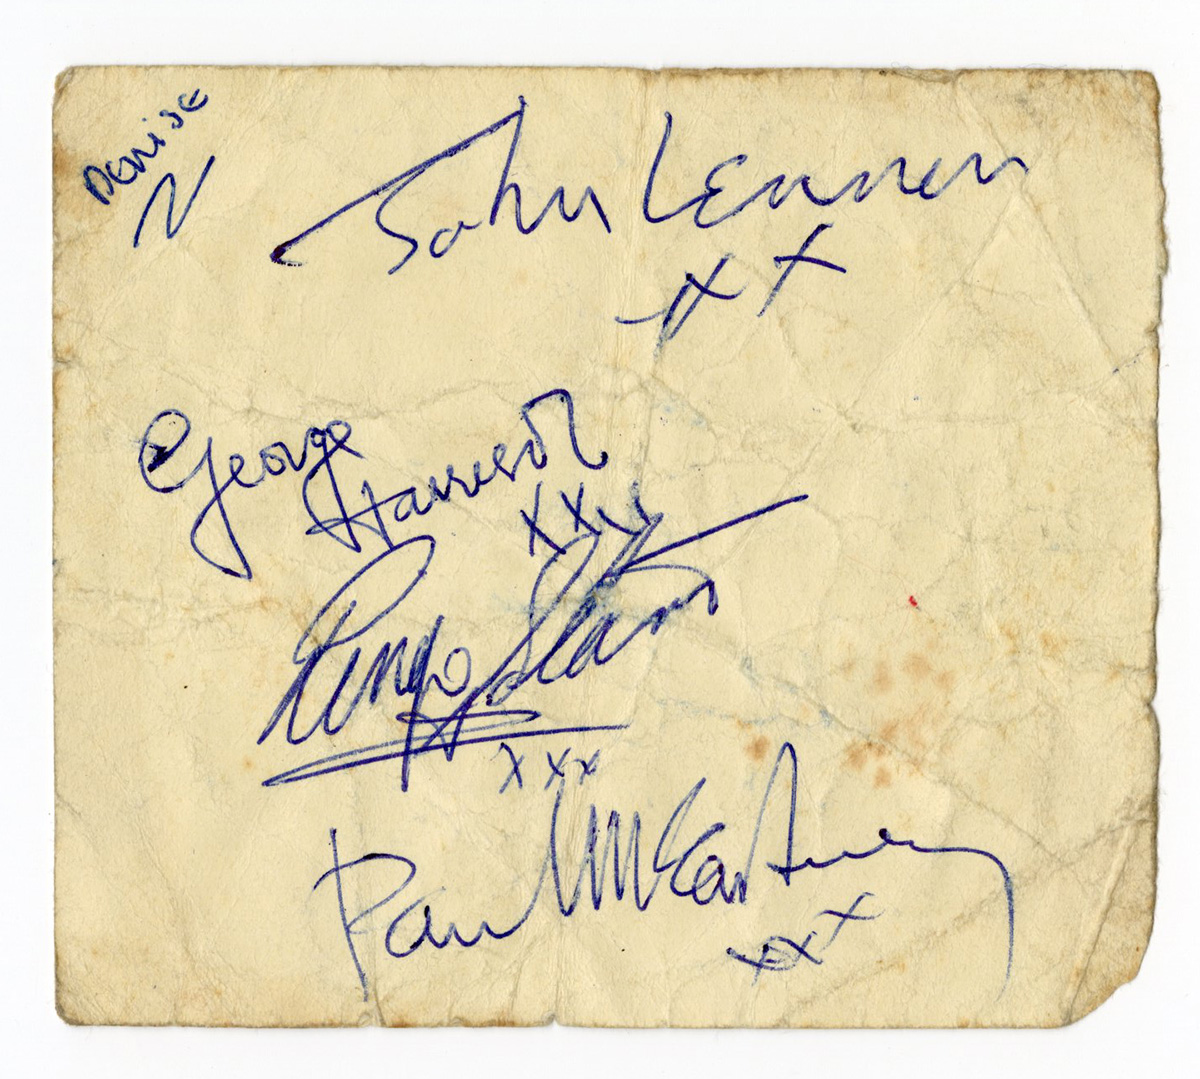 Denise
John Lennon
xx
George
Harrison
xxx
Ringo Starr
xxx
Paul McCartney
xxx